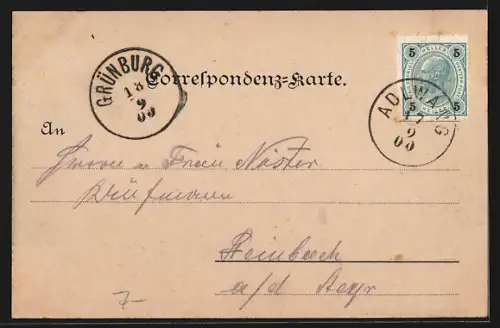 GRÜNBURG
18
9
00
Correspondenz-Karte.
5 HELLER 5
5 5
ADLWANG
17
9
00
An
Herrn u Frau
Kaufmann
Steinbach
a/d Steyr
7-